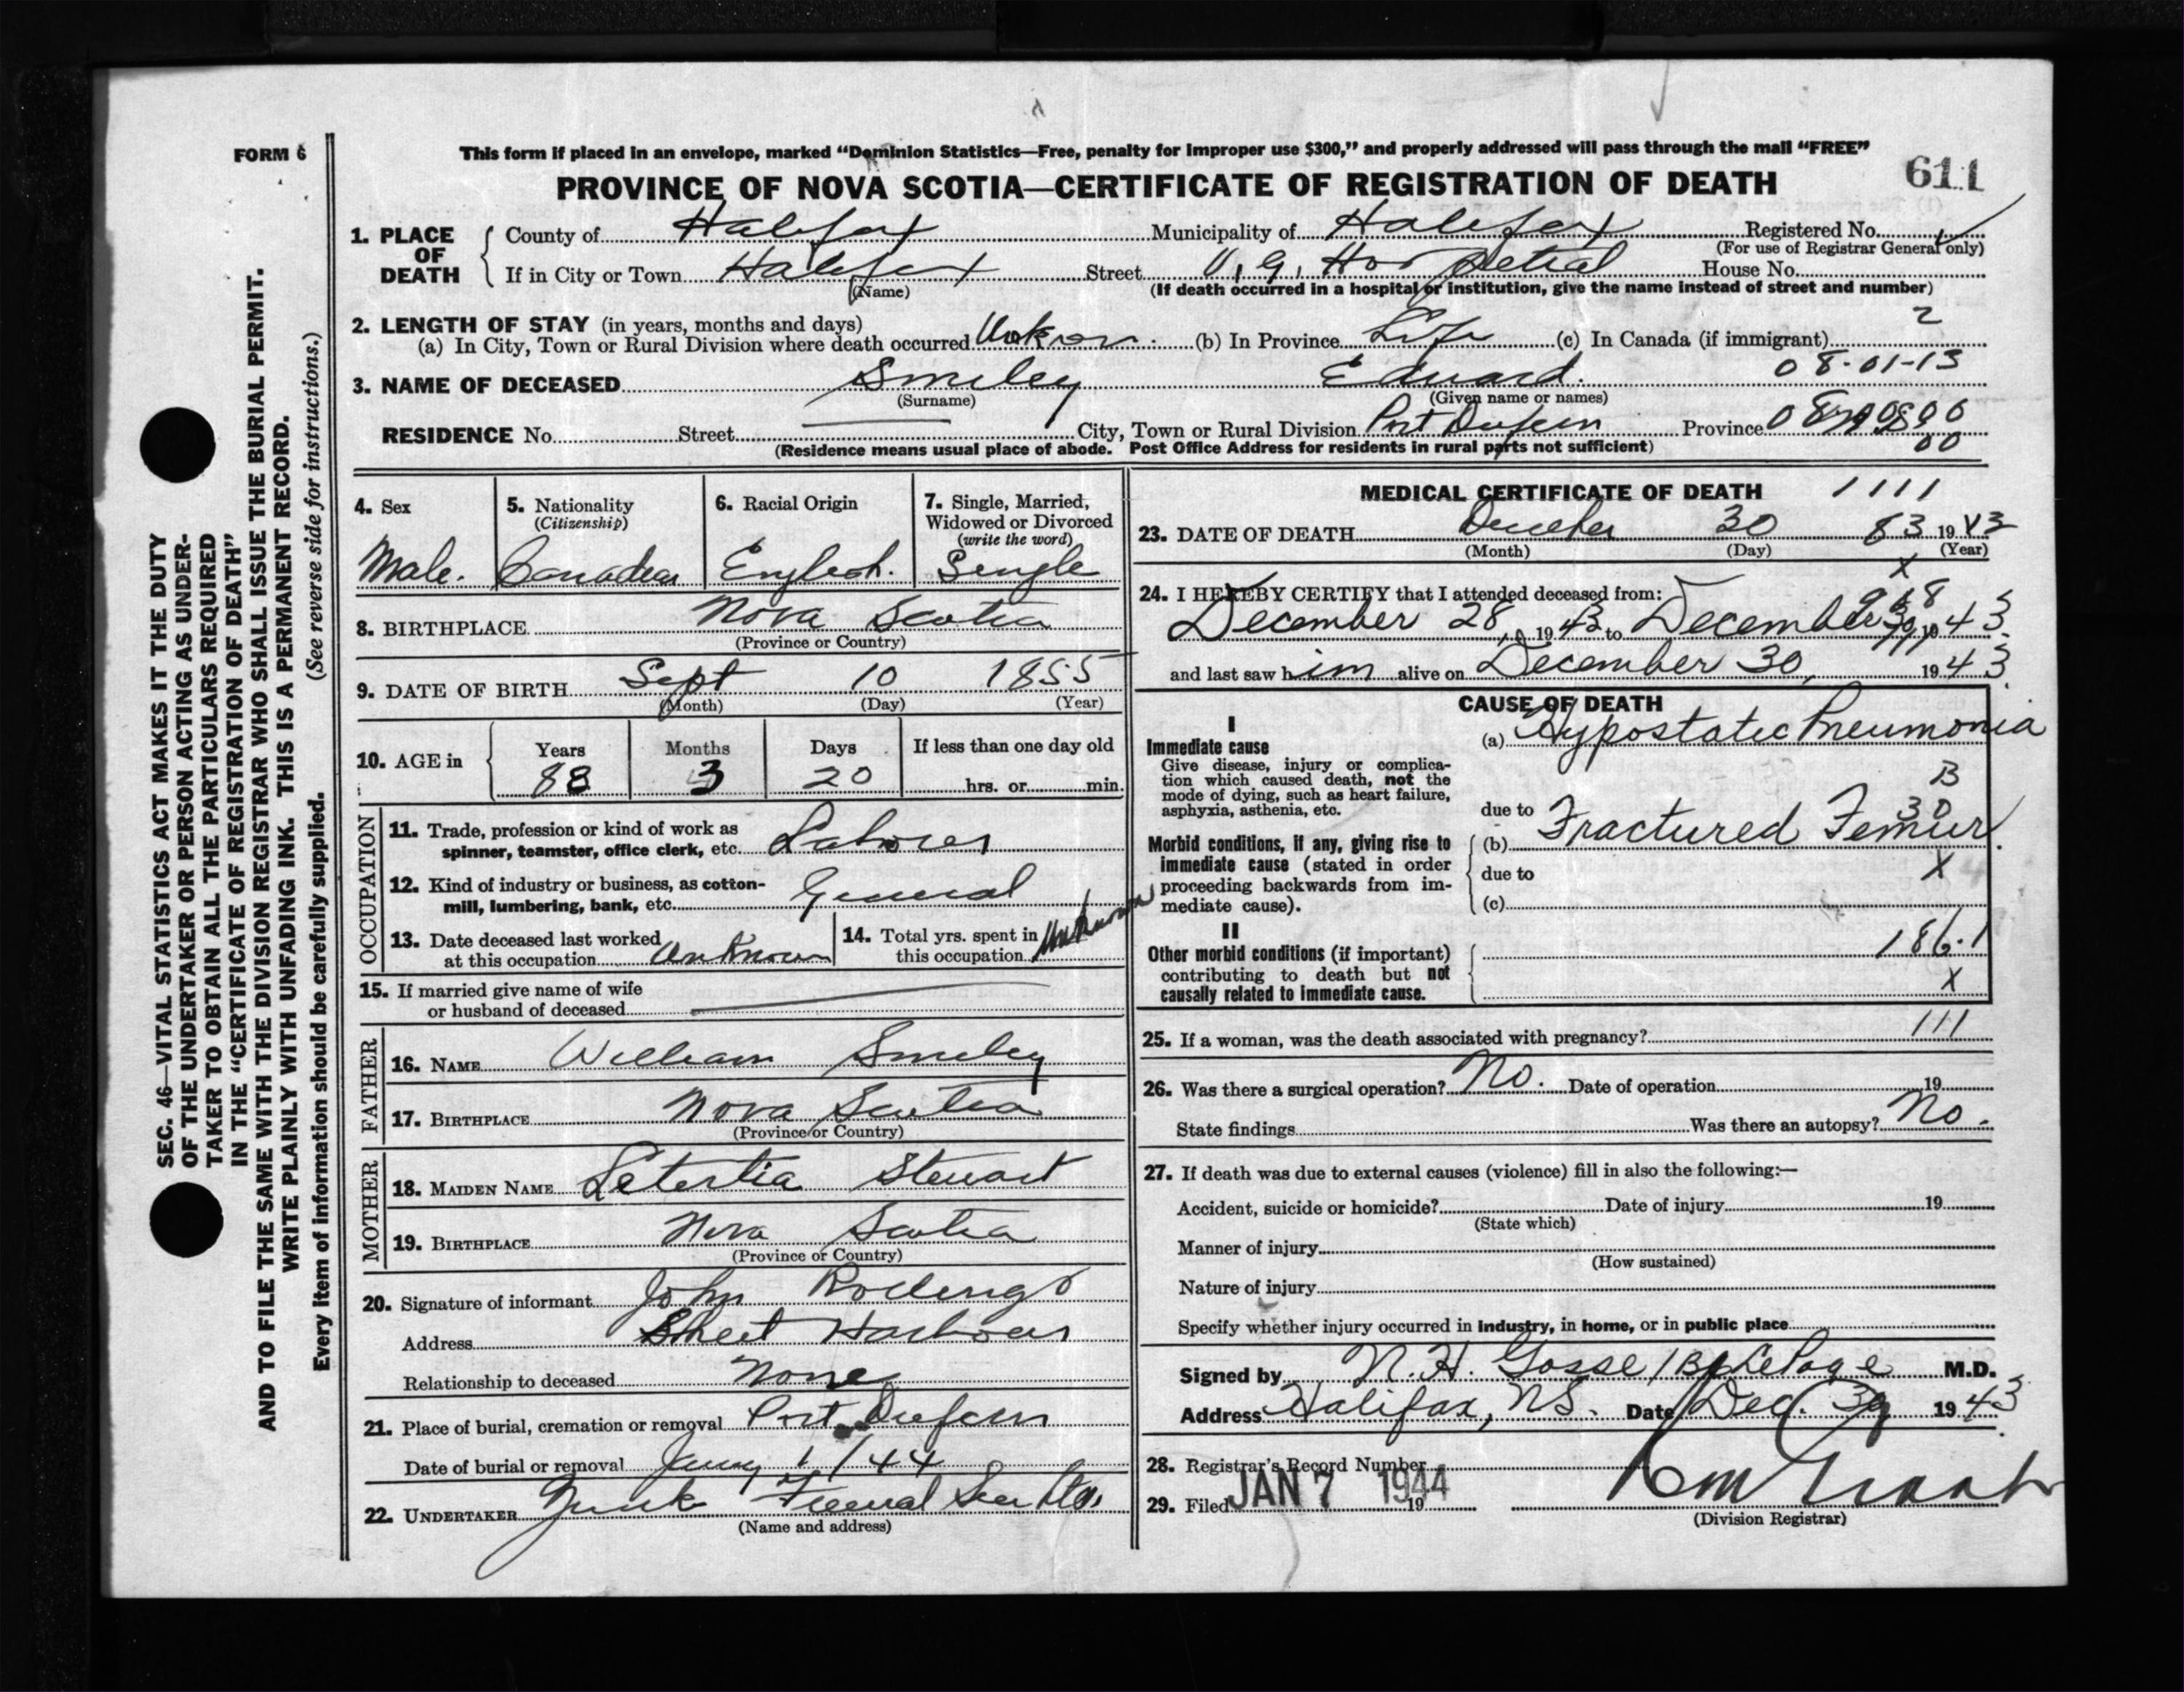 FORM 6
This form if placed in an envelope, marked “Dominion Statistics—Free, penalty for improper use $300,” and properly addressed will pass through the mail “FREE”
PROVINCE OF NOVA SCOTIA—CERTIFICATE OF REGISTRATION OF DEATH
611
1. PLACE OF DEATH
County of Halifax Municipality of Halifax Registered No.
(For use of Registrar General only)
If in City or Town Halifax Street V. G. Hospital House No.
(Name) (If death occurred in a hospital or institution, give the name instead of street and number)
2. LENGTH OF STAY (in years, months and days)
(a) In City, Town or Rural Division where death occurred (b) In Province Life (c) In Canada (if immigrant) 2
3. NAME OF DECEASED Smiley Edward. 08-01-13
(Surname) (Given name or names)
RESIDENCE No. Street City, Town or Rural Division Port Dufferin Province
00
(Residence means usual place of abode. Post Office Address for residents in rural parts not sufficient)
4. Sex
Male.
5. Nationality
(Citizenship)
Canadian
6. Racial Origin
English.
7. Single, Married,
Widowed or Divorced
(write the word)
Single
8. BIRTHPLACE Nova Scotia
(Province or Country)
9. DATE OF BIRTH Sept 10 1855
(Month) (Day) (Year)
10. AGE in Years Months Days If less than one day old
88 3 20 hrs. or min.
OCCUPATION
11. Trade, profession or kind of work as
spinner, teamster, office clerk, etc. Laborer
12. Kind of industry or business, as cotton-
mill, lumbering, bank, etc. General
13. Date deceased last worked
at this occupation Unknown
14. Total yrs. spent in
this occupation Unknown
15. If married give name of wife
or husband of deceased
FATHER
16. NAME William Smiley
17. BIRTHPLACE Nova Scotia
(Province or Country)
MOTHER
18. MAIDEN NAME Stewart
19. BIRTHPLACE Nova Scotia
(Province or Country)
20. Signature of informant John
Address Sheet Harbour
Relationship to deceased None
21. Place of burial, cremation or removal Port Dufferin
Date of burial or removal 1/44
22. UNDERTAKER Funeral
(Name and address)
MEDICAL CERTIFICATE OF DEATH 1111
23. DATE OF DEATH December 30 83 1943
(Month) (Day) (Year)
X
24. I HEREBY CERTIFY that I attended deceased from:
December 28, 1943 to December 30, 1943.
and last saw him alive on December 30, 1943
CAUSE OF DEATH
I
Immediate cause
Give disease, injury or complica-
tion which caused death, not the
mode of dying, such as heart failure,
asphyxia, asthenia, etc.
(a) Hypostatic Pneumonia
B
30
due to
Morbid conditions, if any, giving rise to
immediate cause (stated in order
proceeding backwards from im-
mediate cause).
(b) Fractured Femur.
due to X
(c)
II
Other morbid conditions (if important)
contributing to death but not
causally related to immediate cause.
186.1
X
25. If a woman, was the death associated with pregnancy? 111
26. Was there a surgical operation? No. Date of operation 19
State findings Was there an autopsy? No.
27. If death was due to external causes (violence) fill in also the following:—
Accident, suicide or homicide? Date of injury 19
(State which)
Manner of injury
(How sustained)
Nature of injury
Specify whether injury occurred in industry, in home, or in public place
Signed by N. H. Gosse / LePage M.D.
Address Halifax, NS. Date Dec. 30 1943
28. Registrar's Record Number
29. Filed JAN 7 1944 19
(Division Registrar)
SEC. 46—VITAL STATISTICS ACT MAKES IT THE DUTY
OF THE UNDERTAKER OR PERSON ACTING AS UNDER-
TAKER TO OBTAIN ALL THE PARTICULARS REQUIRED
IN THE “CERTIFICATE OF REGISTRATION OF DEATH”
AND TO FILE THE SAME WITH THE DIVISION REGISTRAR WHO SHALL ISSUE THE BURIAL PERMIT.
WRITE PLAINLY WITH UNFADING INK. THIS IS A PERMANENT RECORD.
Every item of information should be carefully supplied. (See reverse side for instructions.)